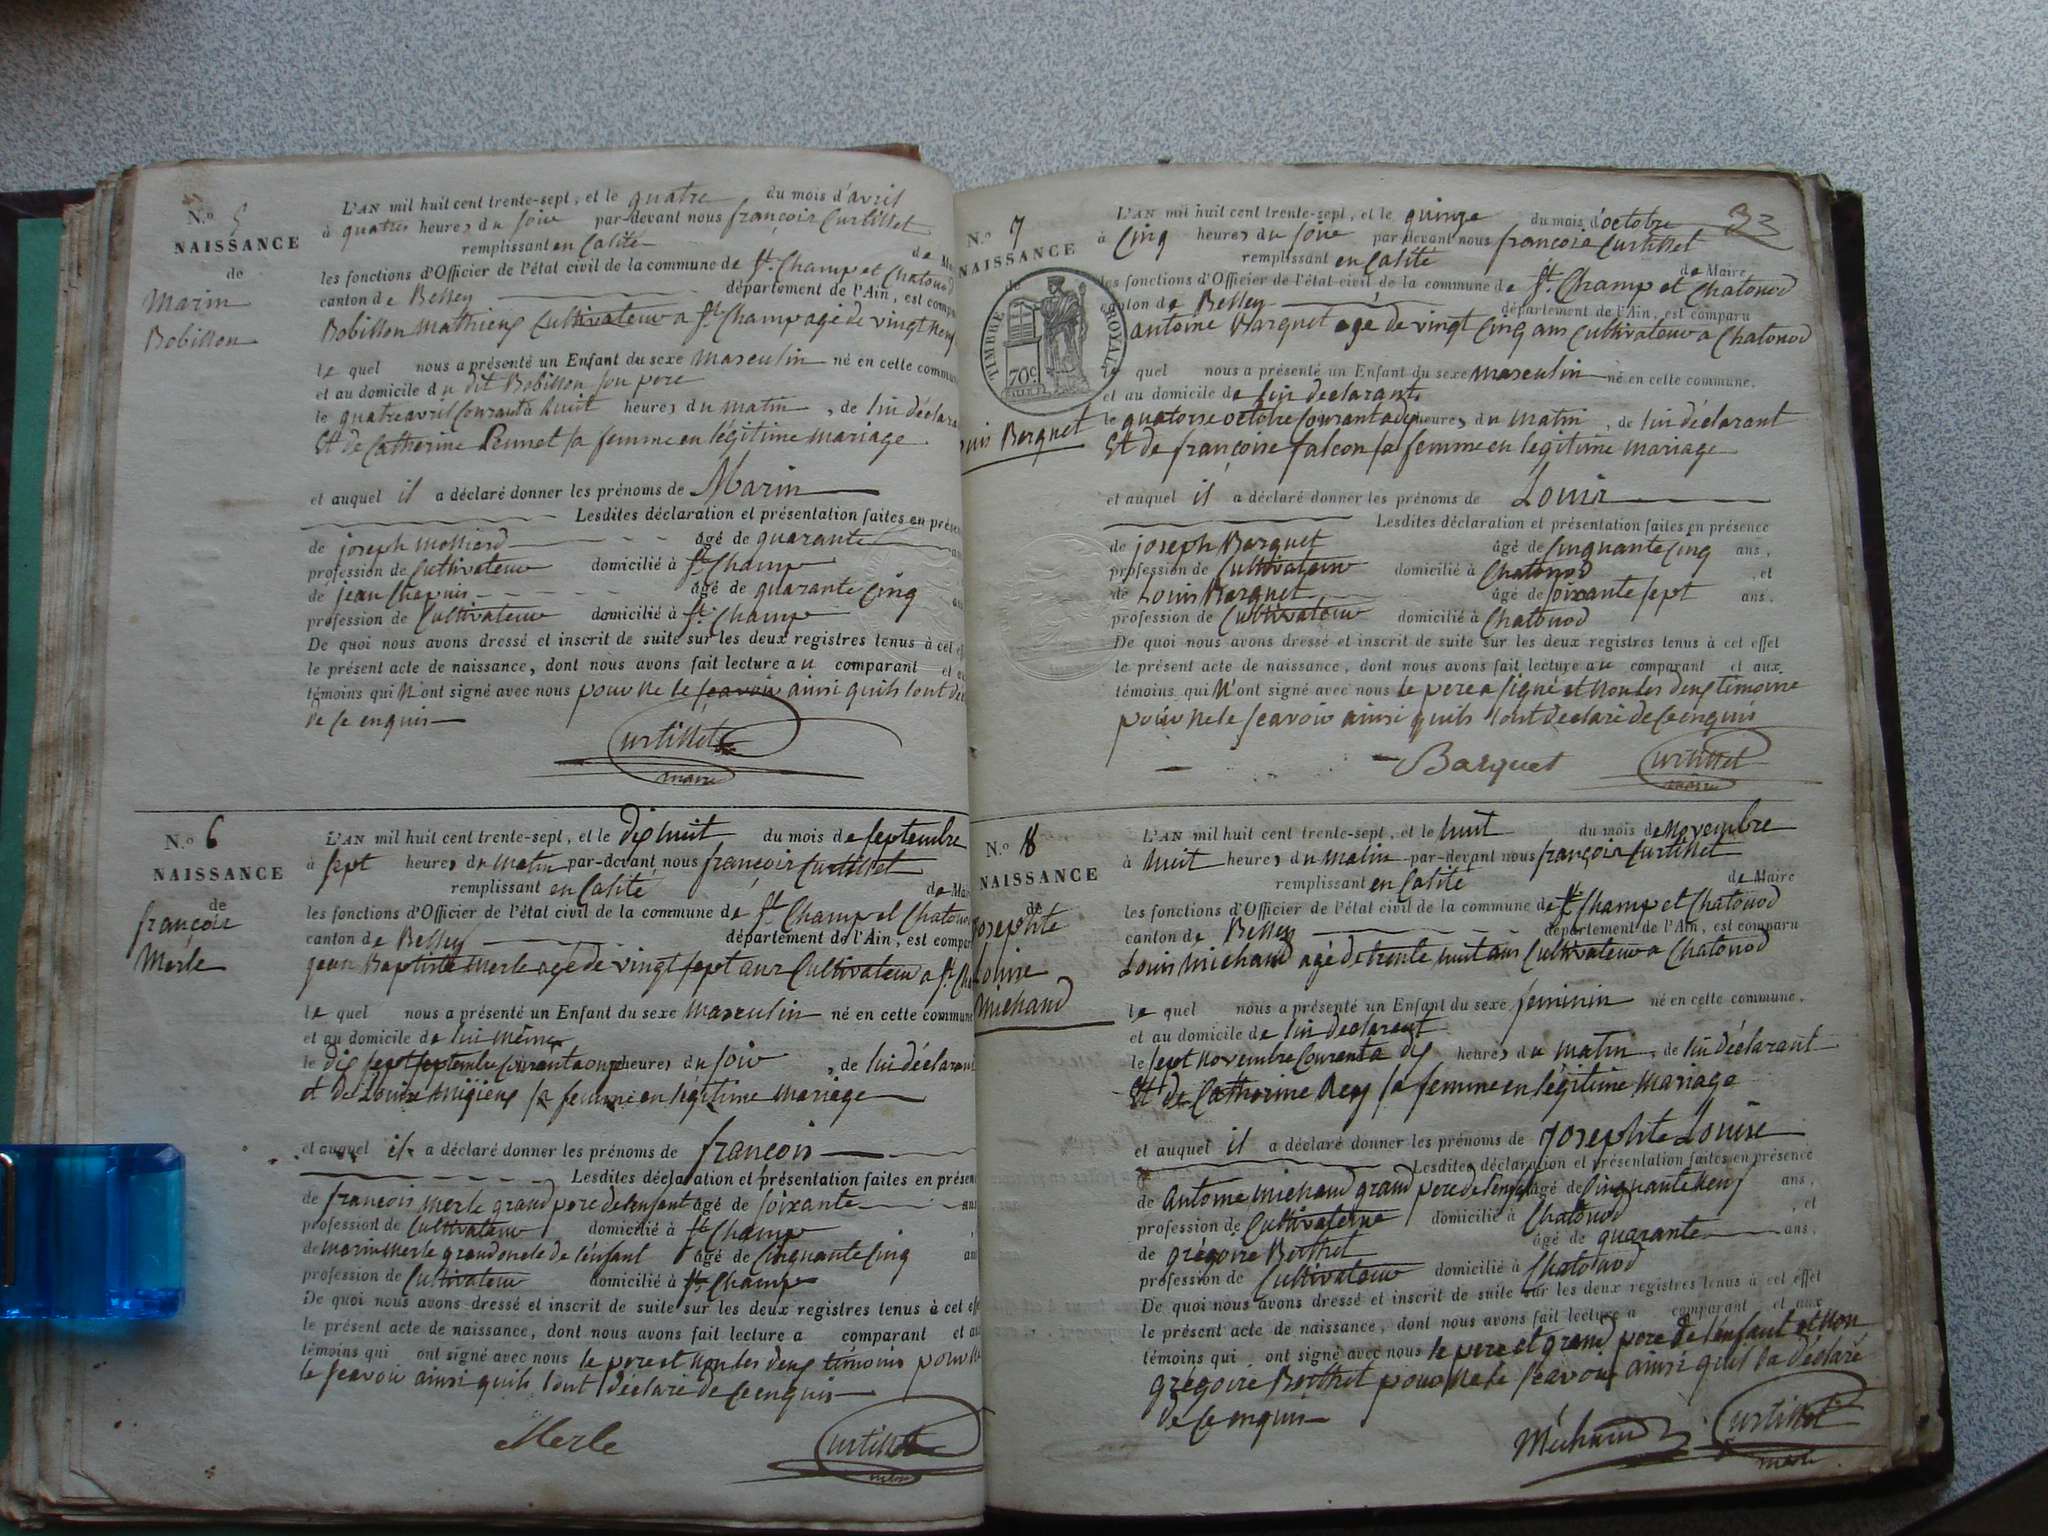 N.o 5
NAISSANCE
de
Marin
Bobillon
L'AN mil huit cent trente-sept, et le quatre du mois d'avril
à quatre heures du soir par-devant nous françois Curtillet
remplissant en Calité de Ma
les fonctions d'Officier de l'état civil de la commune de St. Champ et Chatonod
canton de Belley département de l'Ain, est compa
Bobillon Mathieux Cultivateur a St Champ agé de vingt neuf
le quel nous a présenté un Enfant du sexe masculin né en cette commun
et au domicile du dit Bobillon son pere
le quatre avril Courant à huit heures du matin, de lui déclara
Et de Catherine Pennet sa femme en légitime mariage.
et auquel il a déclaré donner les prénoms de Marin
Lesdites déclaration et présentation faites en présen
de joseph molliard âgé de quarante ans
profession de Cultivateur domicilié à St Champ
de jean Chapuis âgé de quarante Cinq ans
profession de Cultivateur domicilié à St Champ
De quoi nous avons dressé et inscrit de suite sur les deux registres tenus à cet eff
le présent acte de naissance, dont nous avons fait lecture au comparant et au
témoins qui n'ont signé avec nous pour ne le scavoir ainsi quils lont de
de ce enquis
Curtillet
maire
N.o 6
NAISSANCE
de
françois
Merle
L'AN mil huit cent trente-sept, et le dix huit du mois de septembre
à sept heures du matin par-devant nous françois Curtillet
remplissant en Calité de Mai
les fonctions d'Officier de l'état civil de la commune de St Champ et Chatono
canton de Belley département de l'Ain, est compar
jean Baptiste Merle agé de vingt sept ans Cultivateur a St Cha
le quel nous a présenté un Enfant du sexe masculin né en cette commune
et au domicile de lui même
le dix sept septembre Courant a onze heures du soir, de lui déclaran
et de Louise sa femme en légitime mariage
et auquel il a déclaré donner les prénoms de françois
Lesdites déclaration et présentation faites en présen
de françois merle grand pere de lenfant âgé de soixante ans
profession de Cultivateur domicilié à St Champ
de marin Merle grand oncle de l'enfant âgé de Cinquante Cinq an
profession de Cultivateur domicilié à St Champ
De quoi nous avons dressé et inscrit de suite sur les deux registres tenus à cet eff
le présent acte de naissance, dont nous avons fait lecture a comparant et au
témoins qui ont signé avec nous le pere et non les deux témoins pour ne
le scavoir ainsi quils lont déclaré de ce enquis
Merle
Curtillet
maire
33
N.o 7
NAISSANCE
de
TIMBRE ROYAL
70c
Louis Borquet
L'AN mil huit cent trente-sept, et le quinze du mois d'octobre
à Cinq heures du soir par-devant nous françois Curtillet
remplissant en Calité de Maire
les fonctions d'Officier de l'état civil de la commune de St. Champ et Chatonod
canton de Belley département de l'Ain, est comparu
antoine Barquet agé de vingt Cinq ans Cultivateur a Chatonod
le quel nous a présenté un Enfant du sexe masculin né en cette commune,
et au domicile de lui declarant
le quatorse octobre Courant a dix heures du matin, de lui déclarant
Et de françoise falcon sa femme en legitime mariage
et auquel il a déclaré donner les prénoms de Louis
Lesdites déclaration et présentation faites en présence
de joseph Barquet âgé de Cinquante Cinq ans,
profession de Cultivateur domicilié à Chatonod, et
de Louis Barquet âgé de soixante sept ans,
profession de Cultivateur domicilié à Chatonod
De quoi nous avons dressé et inscrit de suite sur les deux registres tenus à cet effet
le présent acte de naissance, dont nous avons fait lecture au comparant et aux
témoins qui N'ont signé avec nous le pere a signé et non les deux timoins
pour ne le scavoir ainsi quils lont declaré de ce enquis
Barquet
Curtillet
maire
N.o 8
NAISSANCE
de
josephte
Louise
Michaud
L'AN mil huit cent trente-sept, et le huit du mois de novembre
à huit heures du matin par-devant nous françois Curtillet
remplissant en Calité de Maire
les fonctions d'Officier de l'état civil de la commune de St Champ et Chatonod
canton de Belley département de l'Ain, est comparu
Louis Michaud agé de trente huit ans Cultivateur a Chatonod
le quel nous a présenté un Enfant du sexe feminin né en cette commune,
et au domicile de lui declarant
le sept novembre Courent a dix heures du matin, de lui déclarant
Et de Catherine Rey sa femme en légitime mariage
et auquel il a déclaré donner les prénoms de josephte Louise
Lesdites déclaration et présentation faites en présence
de antoine michaud grand pere de lenfant âgé de Cinquante neuf ans,
profession de domicilié à Chatonod, et
de grégoire Berthet âgé de quarante ans,
profession de Cultivateur domicilié à Chatonod
De quoi nous avons dressé et inscrit de suite sur les deux registres tenus à cet effet
le présent acte de naissance, dont nous avons fait lecture a comparant et aux
témoins qui ont signé avec nous le pere et grand pere de lenfant et non
grégoire Berthet pour ne le scavoir ainsi quil la déclaré
de ce enquis
Michaud
Curtillet
maire